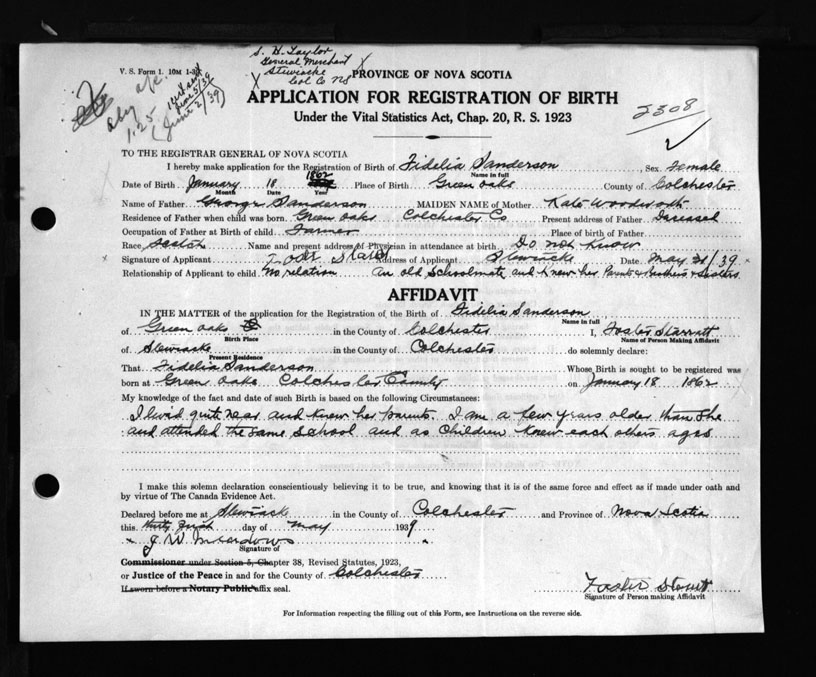 S. H. Taylor
General Merchant
Stewiacke
Col Co NS
V. S. Form 1. 10M 1-39
1.25
June 2/39
PROVINCE OF NOVA SCOTIA
APPLICATION FOR REGISTRATION OF BIRTH
Under the Vital Statistics Act, Chap. 20, R. S. 1923
2308
TO THE REGISTRAR GENERAL OF NOVA SCOTIA
I hereby make application for the Registration of Birth of Fidelia Sanderson, Sex Female
Name in full
1862
Date of Birth January 18 Place of Birth Green oaks County of Colchester
Month Date Year
Name of Father George Sanderson MAIDEN NAME of Mother Kate Woodworth
Residence of Father when child was born Green oaks Colchester Co Present address of Father Deceased
Occupation of Father at Birth of child Farmer Place of Birth of Father
Race Scotch Name and present address of Physician in attendance at birth Do not know
Signature of Applicant Address of Applicant Stewiacke Date May 31/39
Relationship of Applicant to child No relation An old Schoolmate and knew her Parents & Brothers & Sisters
AFFIDAVIT
IN THE MATTER of the application for the Registration of the Birth of Fidelia Sanderson
Name in full
of Green oaks in the County of Colchester I, Foster Starratt
Birth Place Name of Person Making Affidavit
of Stewiacke in the County of Colchester do solemnly declare:
Present Residence
That Fidelia Sanderson Whose Birth is sought to be registered was
born at Green oaks Colchester County on January 18 1862
My knowledge of the fact and date of such Birth is based on the following Circumstances:
I lived quite near and knew her parents. I am a few years older than she
and attended the same school and as children knew each others ages
I make this solemn declaration conscientiously believing it to be true, and knowing that it is of the same force and effect as if made under oath and
by virtue of The Canada Evidence Act.
Declared before me at Stewiacke in the County of Colchester and Province of Nova Scotia
this thirty first day of May 1939
J. W. Meadows
Signature of
Commissioner under Section 5, Chapter 38, Revised Statutes, 1923,
or Justice of the Peace in and for the County of Colchester
If sworn before a Notary Public affix seal.
Foster Starratt
Signature of Person making Affidavit
For Information respecting the filling out of this Form, see Instructions on the reverse side.